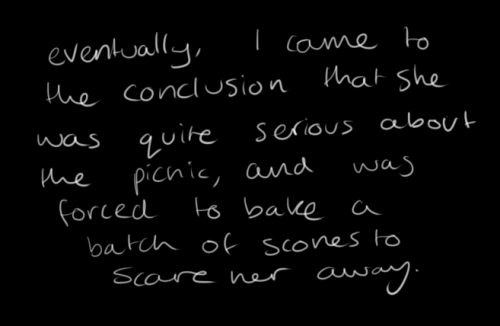 eventually, I came to
the conclusion that she
was quite serious about
the picnic, and was
forced to bake a
batch of scones to
scare her away.